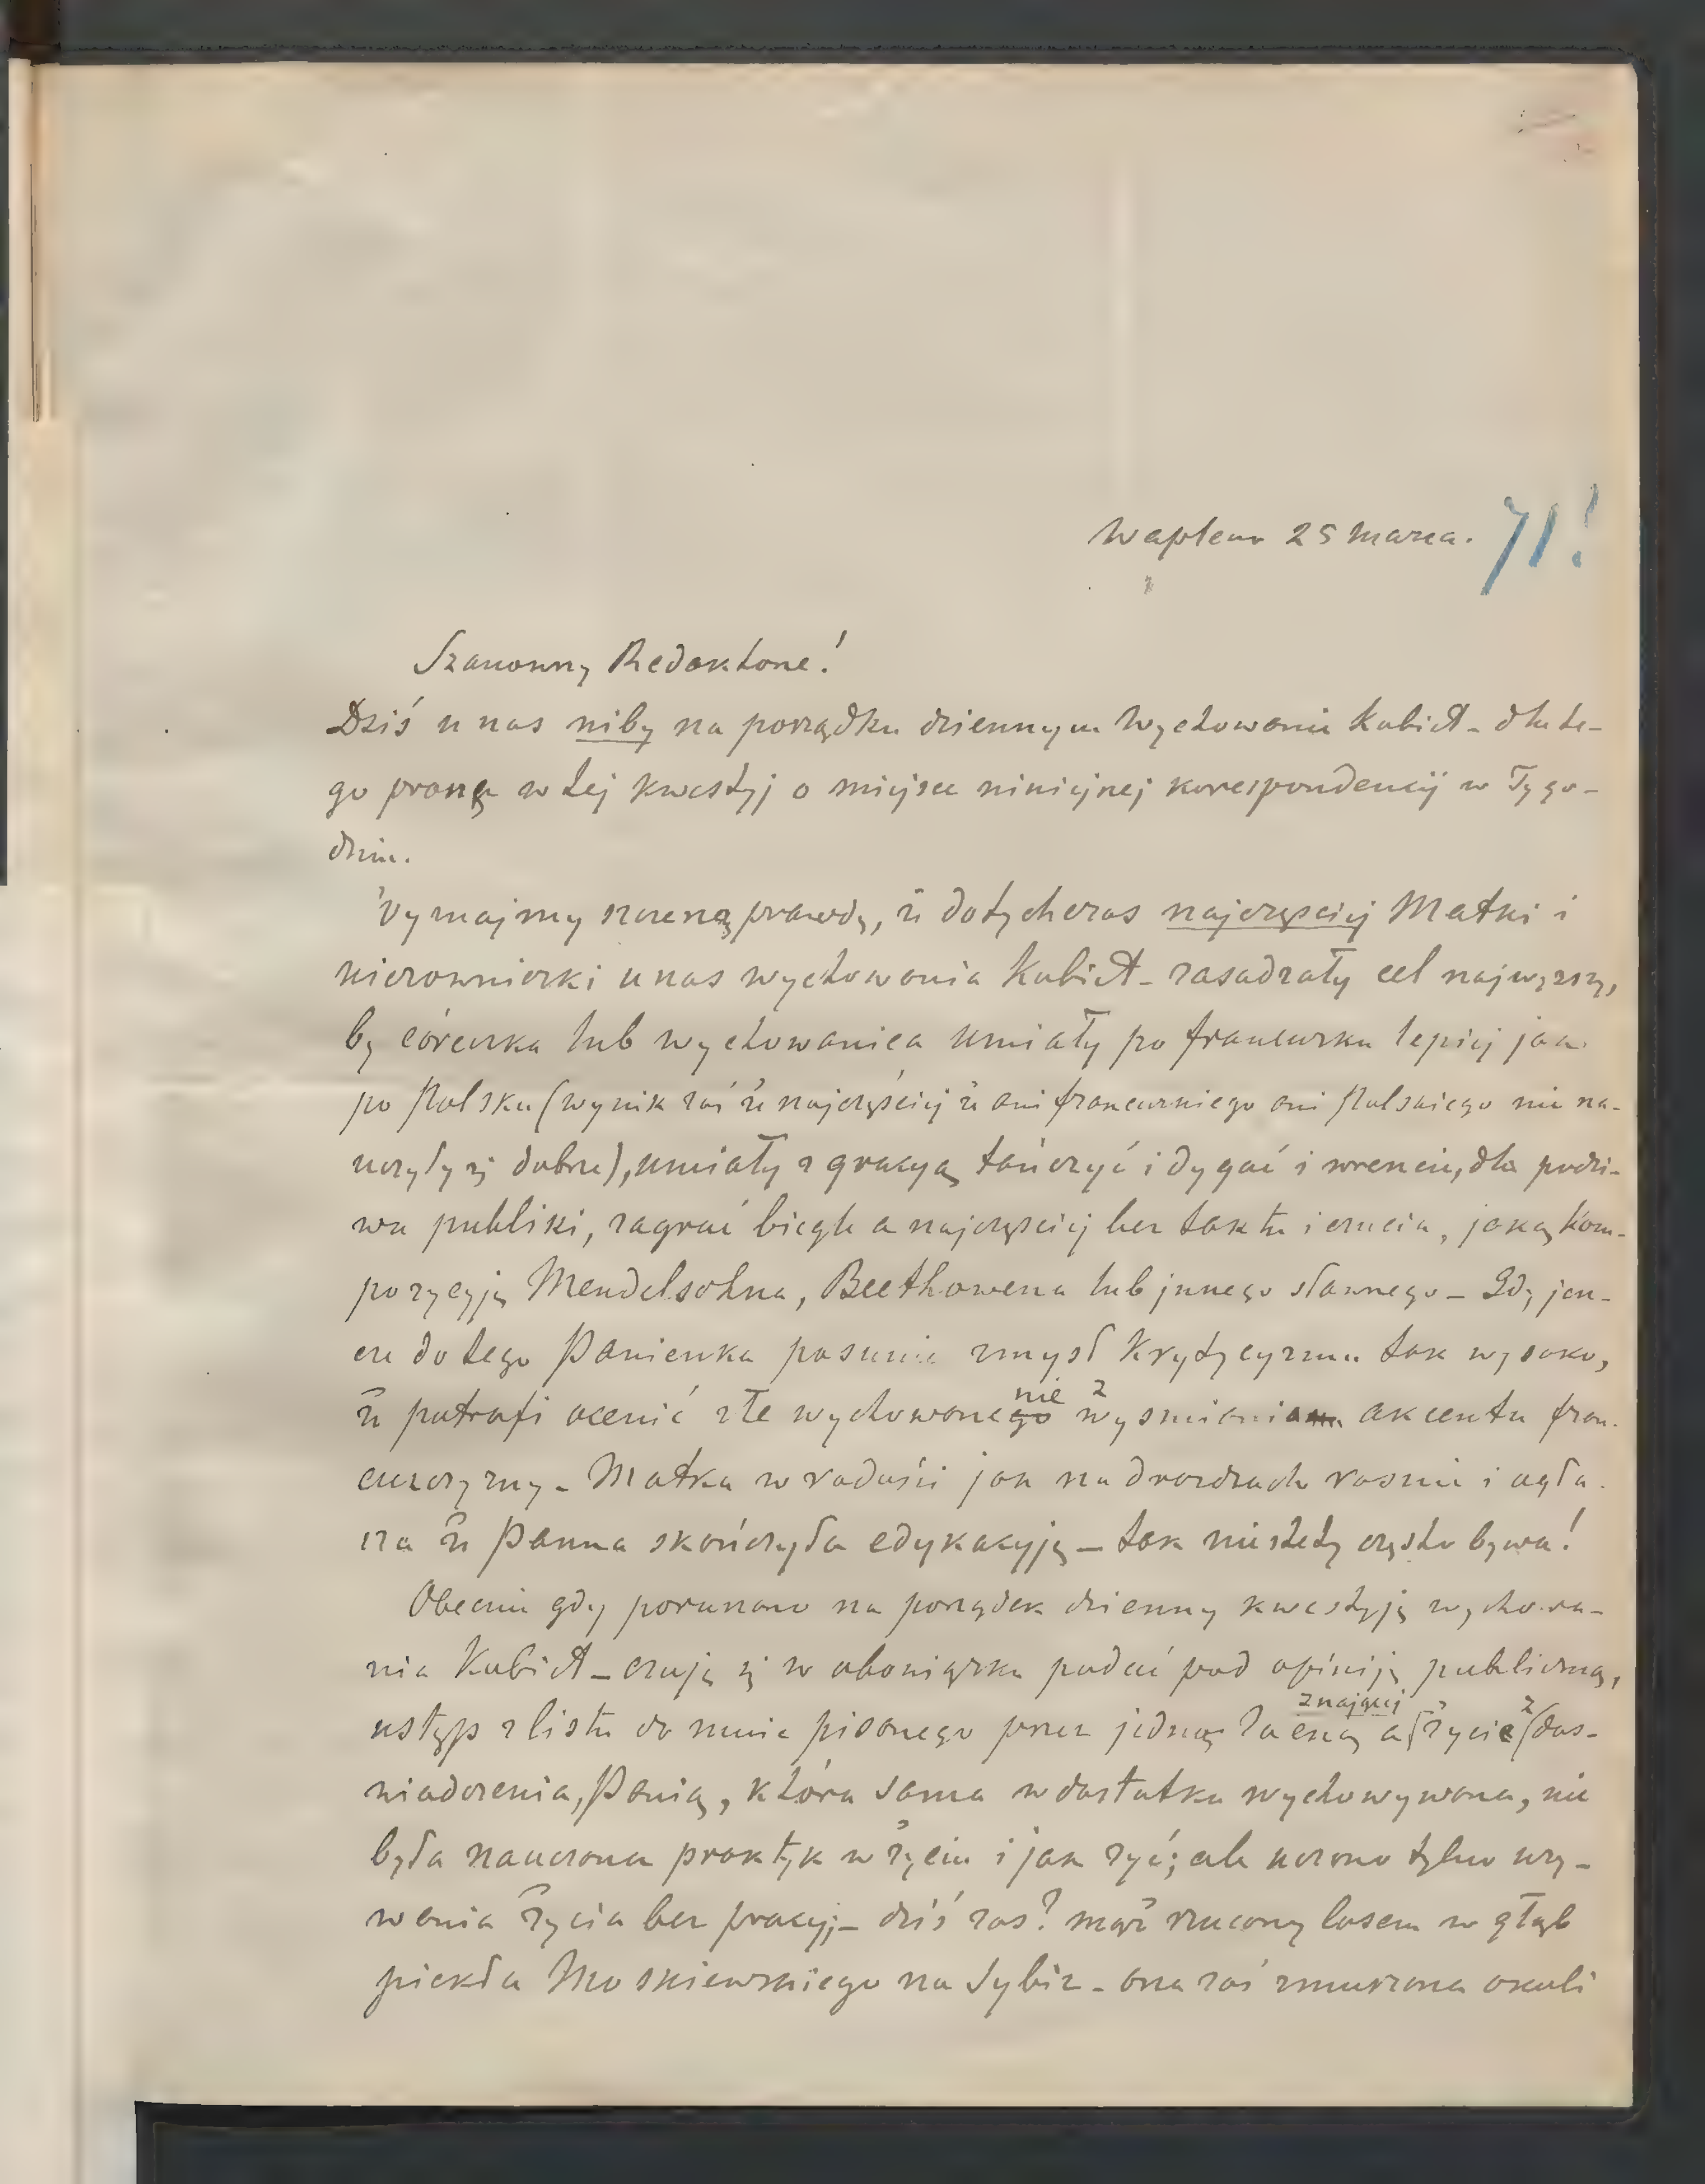 Waplewo 25 marca. 71!
Szanowny Redaktorze!
Dziś u nas niby na porządku dziennym wychowanie kobiet – dla te-
go proszę w tej kwestyj o miejsce niniejszej korespondencij w Tygo-
dniu.
Wyznajmy szczerą prawdę, że dotychczas najczęściej Matki i
kierowniczki u nas wychowania Kobiet – zasadzały cel najwyższy,
by córeczka lub wychowanica umiały po francusku lepiej jak
po Polsku (wynik zaś że najczęściej że ani francuzkiego ani Polskiego nie na-
uczyły się dobrze), umiały z gracyą tańczyć i dygać i wreszcie, dla podzi-
wu publiki, zagrać biegle a najczęściej bez taktu i czucia, jaką kom-
pozycyję Mendelsohna, Beethowena lub jnnego sławnego – Gdy jesz-
cze do tego Panienka posunie zmysł Krytycyzmu tak wysoko,
że potrafi ocenić źle wychowanego nie z wysmiania akcentu fran-
cuzczyzny – Matka w radości jak na drożdżach rośnie i ogła-
sza że Panna skończyła edykacyję – tak niestety często bywa!
Obecnie gdy poruszono na porządek dzienny kwestyję wychowa-
nia Kobiet – czuję się w obowiązku podać pod opiniję publiczną,
ustęp z listu do mnie pisanego przez jedną zacną a znającej życie z doś-
wiadczenia, Panią, która sama w dostatku wychowywana, nie
była nauczona praktyk w życiu i jak żyć; ale uczono tylko uży-
wania życia bez pracyj – dziś zaś? mąż rzucony losem w głąb
piekła Moskiewskiego na Sybir – ona zaś zmuszona okoli